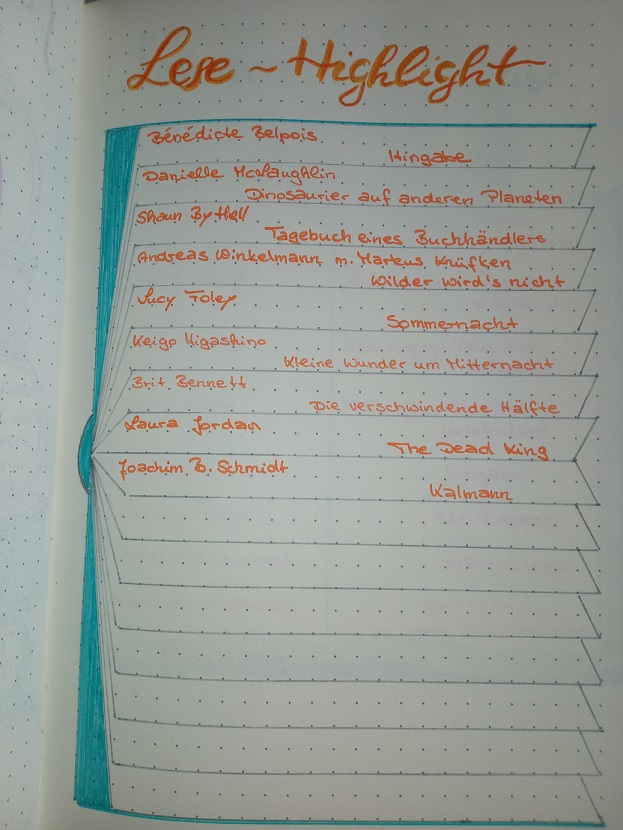 Lese - Highlight
Bénédicte Belpois
Hingabe
Danielle McLaughlin
Dinosaurier auf anderen Planeten
Shaun Bythell
Tagebuch eines Buchhändlers
Andreas Winkelmann m. Markus Knüfken
Wilder wird's nicht
Lucy Foley
Sommernacht
Keigo Higashino
Kleine Wunder um Mitternacht
Brit Bennett
Die verschwindende Hälfte
Laura Jordan
The Dead King
Joachim B. Schmidt
Kalmann